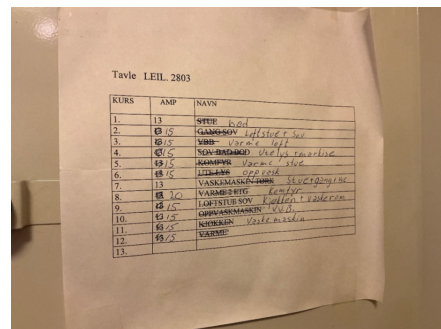 Tavle LEIL. 2803
KURS AMP NAVN
1. 13 STUE bod
2. 15 GANG SOV Loftstue + Sov
3. 15 VBB Varme loft
4. 15 SOV BAD BOD Utelys + markise
5. 15 KOMFYR Varme stue
6. 15 UTE LYS oppvask
7. 13 VASKEMASKIN TØRK Stue + gang
8. 20 VARME 2 ETG Komfyr
9. 15 LOFTSTUE SOV Kjøkken + vaskerom
10. 15 OPPVASKMASKIN V.V.B.
11. 15 KJØKKEN Vaskemaskin
12. 15 VARME
13.